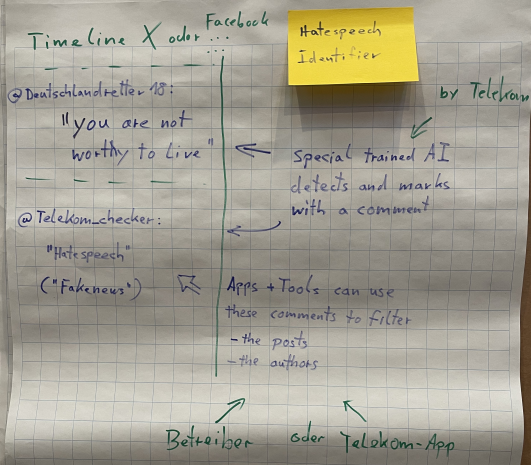 Timeline X oder ...
Facebook
...
Hatespeech
Identifier
by Telekom
@Deutschlandretter 18:
"you are not
worthy to live"
Special trained AI
detects and marks
with a comment
@Telekom_checker:
"Hatespeech"
("Fakenews")
Apps + Tools can use
these comments to filter
- the posts
- the authors
Betreiber oder Telekom-App